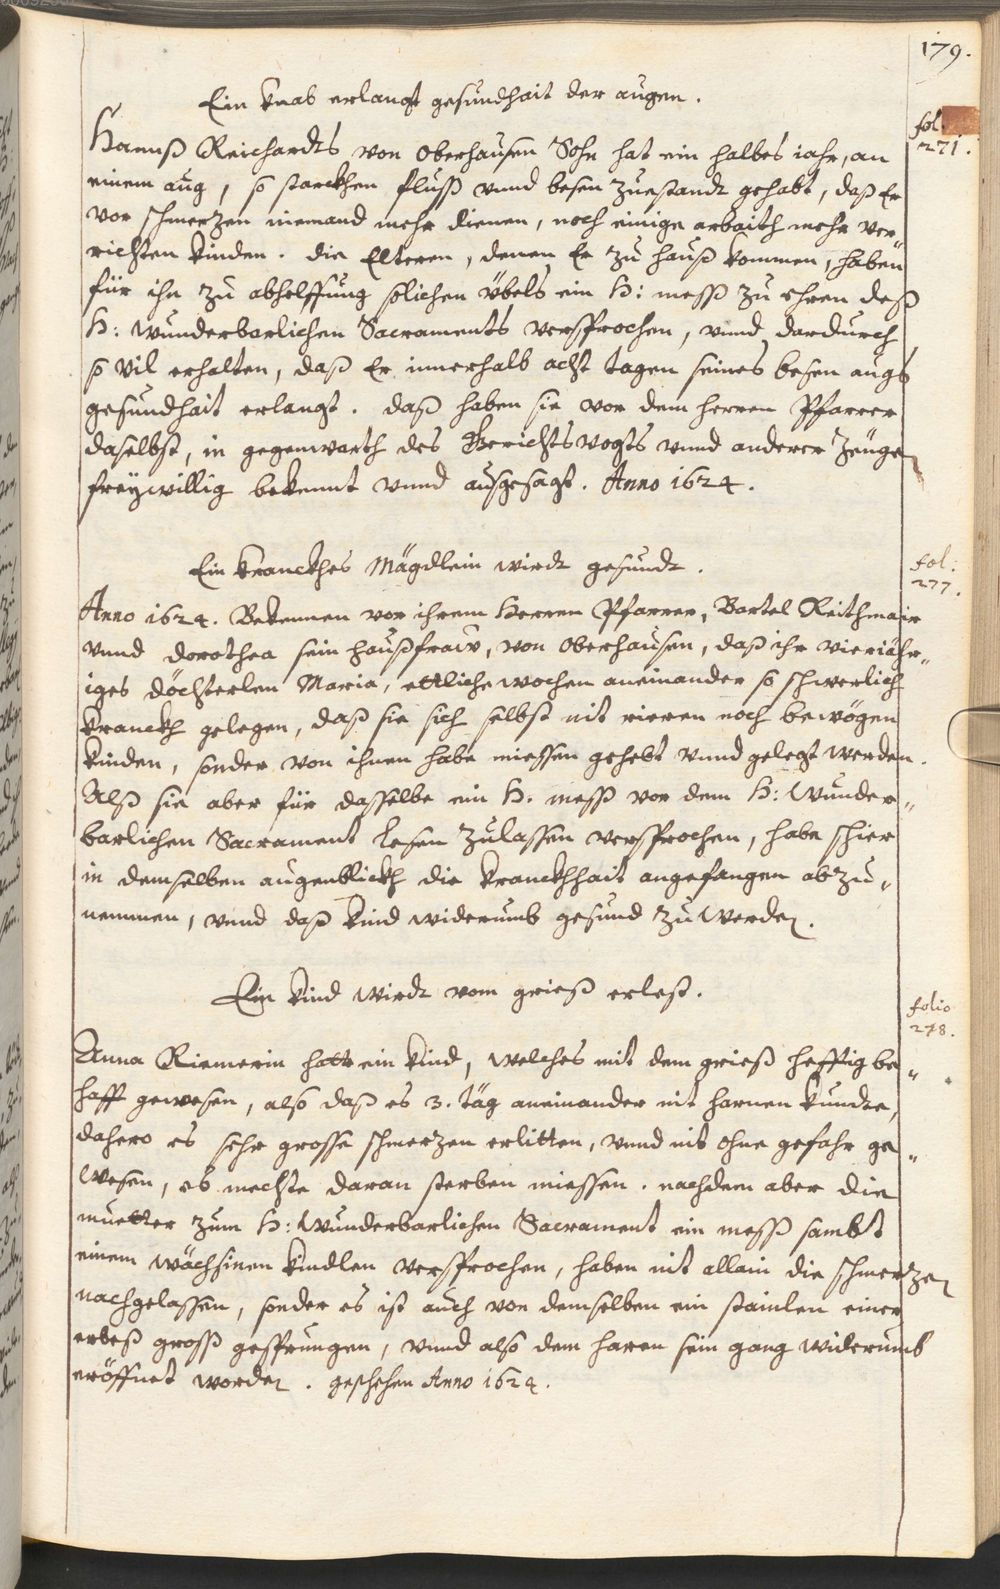 179.
Ein knab erlangt gesundhait der augen.
fol. 271.
Hannß Reichardts von Oberhausen Sohn hat ein halbes iahr, an
einem aug, so starckhen fluß vnnd besen zuestandt gehabt, daß Er
vor schmerzen niemand mehr dienen, noch einige arbaith mehr ver„
richten kinden. die Elteren, denen Er zu hauß kommen, haben
für ihn zu abhelffung solichen übels ein H: meß zu ehren deß
H: Wunderbarlichen Sacraments versprochen, vnnd dardurch
so vil erhalten, daß Er innerhalb acht tagen seines besen augs
gesundhait erlangt. daß haben sie vor dem herren Pfarrer
daselbst, in gegenwarth des Gerichtsvogts vnnd anderer Zeugen
freywillig bekennt vnnd ausgesagt. Anno 1624.
Ein kranckhes Mägdlein wirdt gesundt.
fol: 277.
Anno 1624. Bekennen vor ihrem Herren Pfarrer, Bartel Reithmair
vnnd dorothea sein haußfraw, von Oberhausen, daß ihr vieriähr„
iges döchterlen Maria, ettliche wochen aneinander so schwerlich
kranckh gelegen, daß sie sich selbst nit rieren noch bewögen
kinden, sonder von ihnen habe miessen gehebt vnnd gelegt werden.
Alß sie aber für dasselbe ein H. meß vor dem H: Wunder„
barlichen Sacrament lesen zulassen versprochen, habe schier
in demselben augenblickh die kranckhhait angefangen abzu„
nemmen, vnnd daß kind widerumb gesund zu werden.
Ein kind wirdt vom grieß erlest.
folio 278.
Anna Riemerin hatt ein kind, welches mit dem grieß hefftig be„
hafft gewesen, also daß es 3. täg aneinander nit harnen kundte,
dahero es sehr grosse schmerzen erlitten, vnnd nit ohne gefahr ge„
wesen, es mechte daran sterben miessen. nachdem aber die
muetter zum H: Wunderbarlichen Sacrament ein meß sambt
einem wächsinen kindlen versprochen, haben nit allain die schmerzen
nachgelassen, sonder es ist auch von demselben ein stainlen einer
erbeß groß gesprungen, vnnd also dem haren sein gang widerumb
eröffnet worden. geschehen Anno 1624.